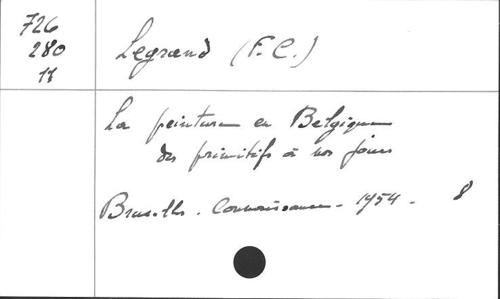 726
280
17
Legrand (F.C.)
La peinture en Belgique
des primitifs à nos jours
Bruxelles. Connaissance - 1954 - 8